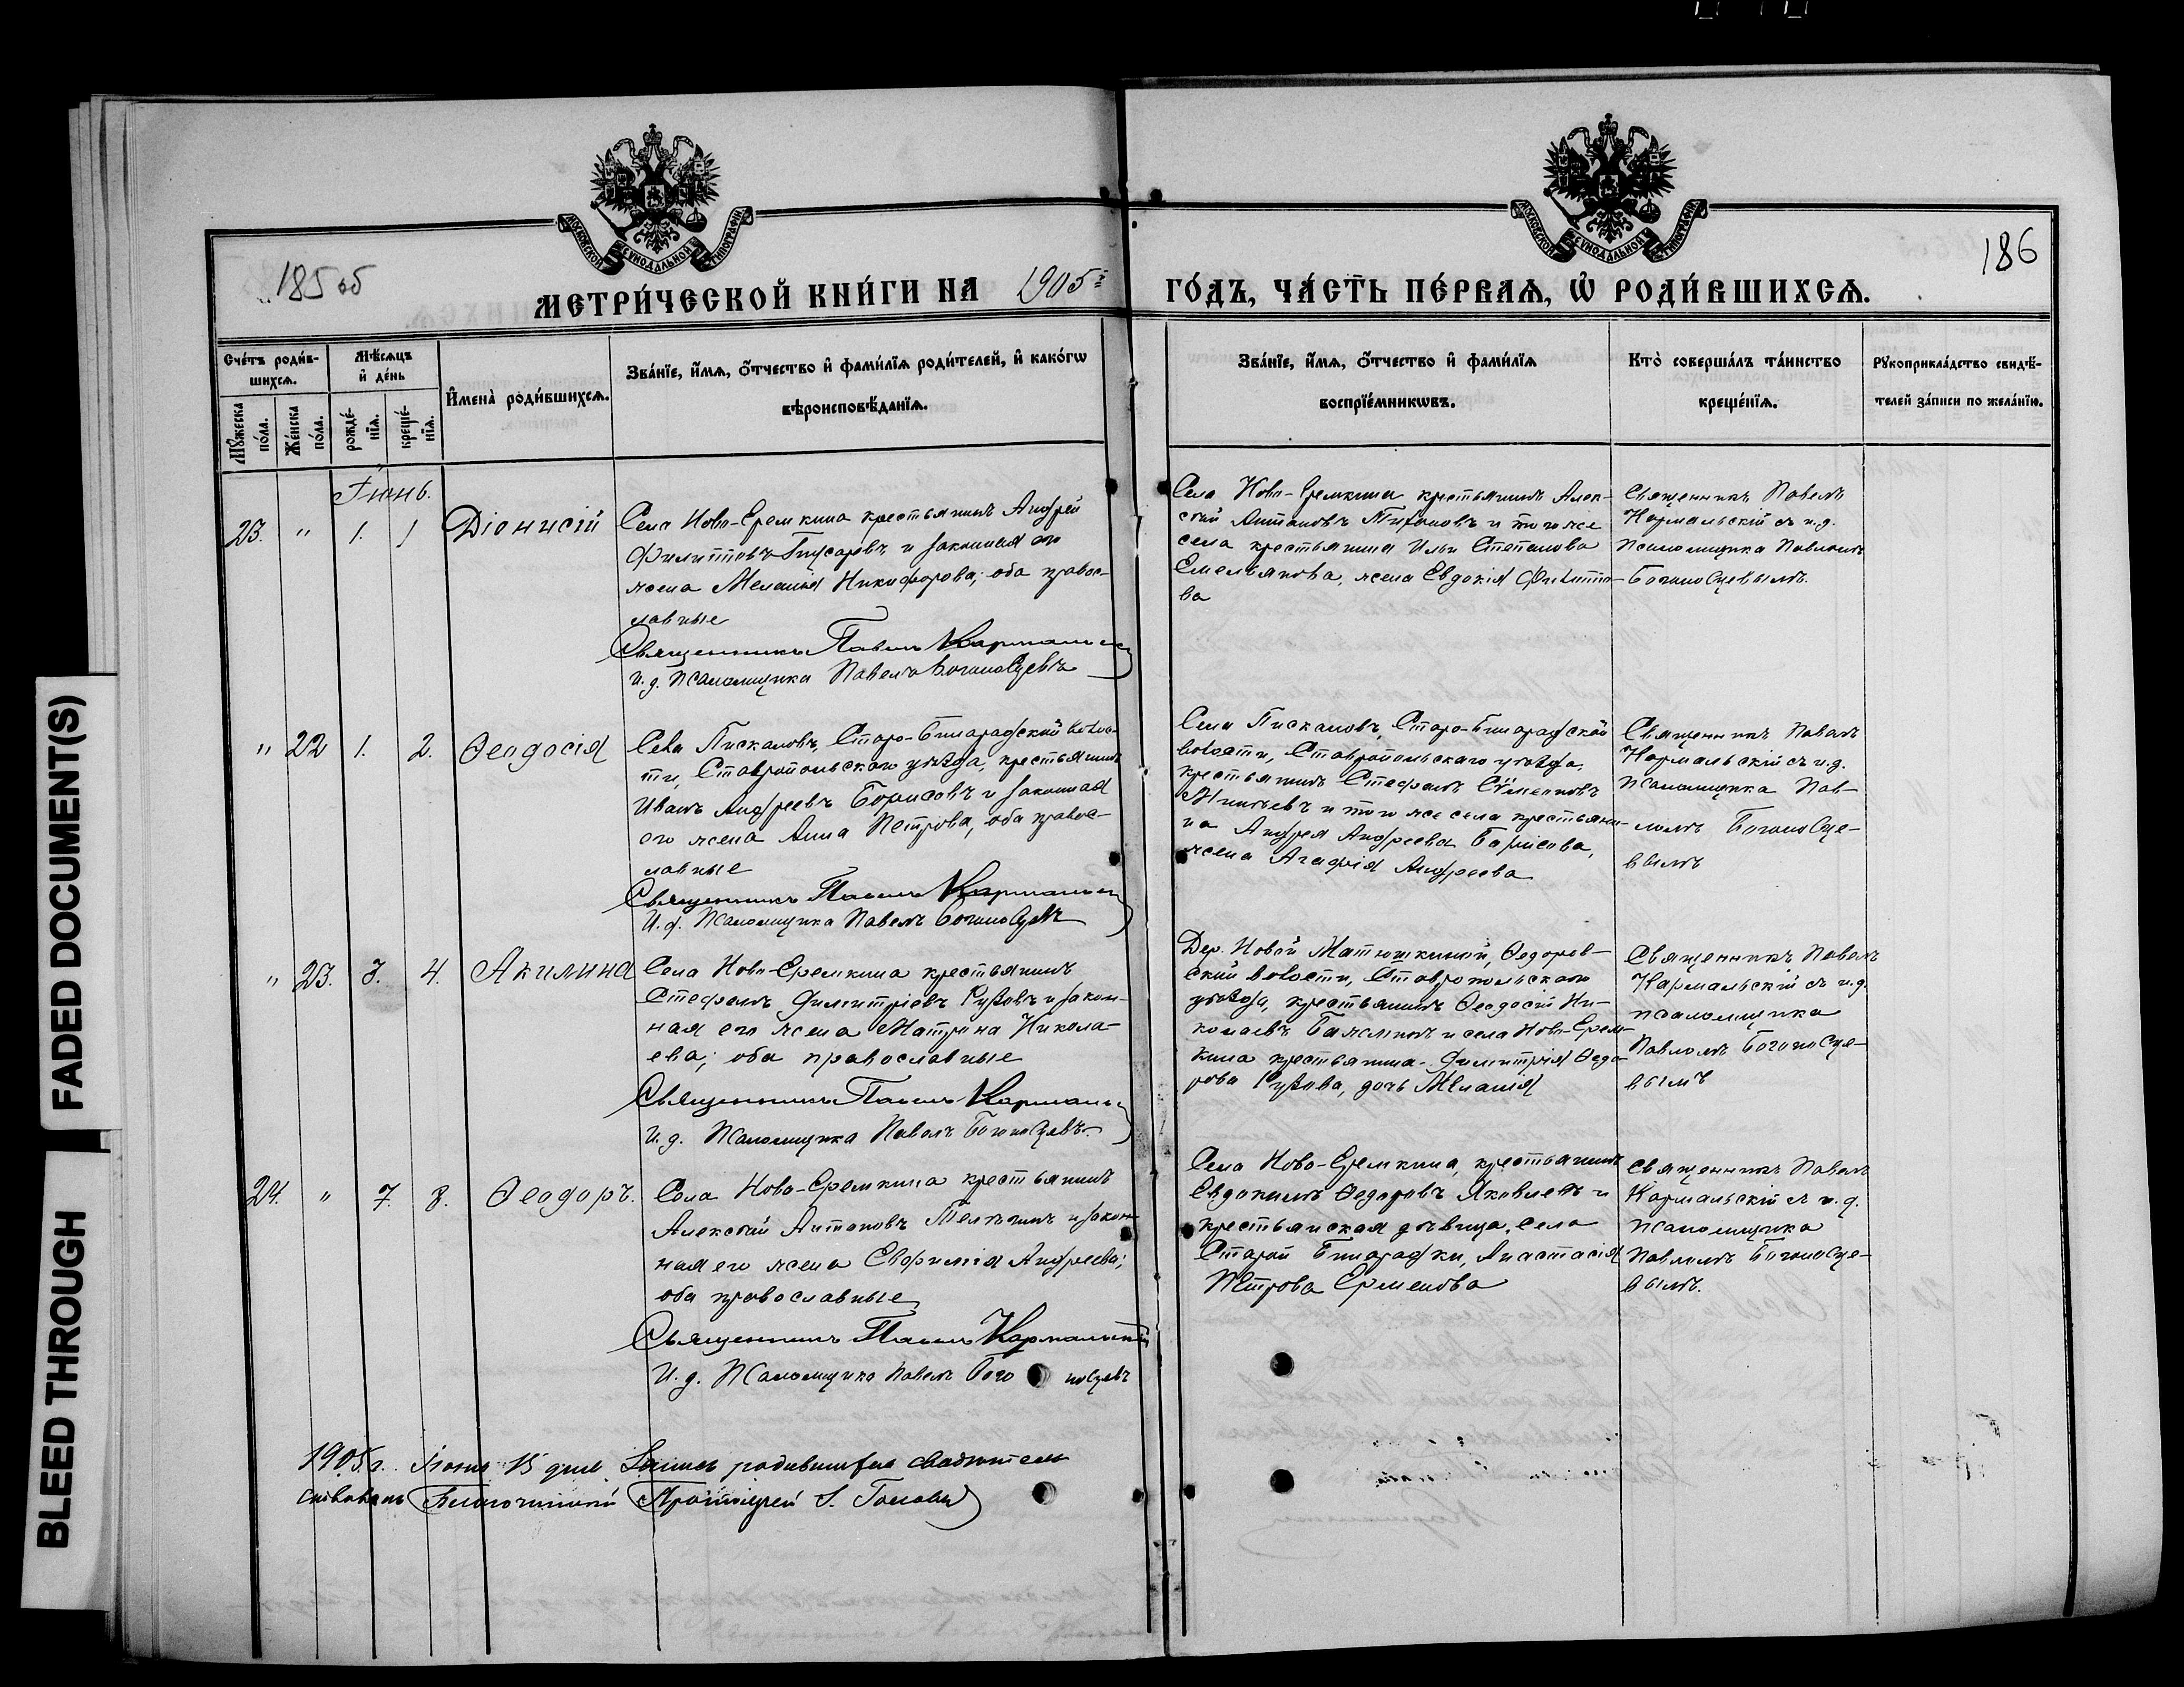 FADED DOCUMENT(S)
BLEED THROUGH
МОСКОВСКОЙ СѴНОДАЛЬНОЙ ТИПОГРАФІИ
МОСКОВСКОЙ СѴНОДАЛЬНОЙ ТИПОГРАФІИ
185 об
186
МЕТРИ́ЧЕСКОЙ КНИ́ГИ НА 1905й ГО́ДЪ, ЧА́СТЬ ПЕ́РВАѦ, Ѡ҆ РОДИ́ВШИХСѦ.
Сче́тъ роди́в-
шихсѧ.
Мѣ́сѧцъ
и҆ де́нь
Мꙋ́жеска
по́ла.
Же́нска
по́ла.
рожде́-
нїѧ.
креще́-
нїѧ.
И҆мена̀ роди́вшихсѧ.
Зва́нїе, и҆́мѧ, ѻ҆́тчество и҆ фами́лїѧ роди́телей, и҆ како́гѡ
вѣроисповѣ́данїѧ.
Зва́нїе, и҆́мѧ, ѻ҆́тчество и҆ фами́лїѧ
воспрїе́мникѡвъ.
Кто̀ соверша́лъ та́инство
креще́нїѧ.
Рꙋкоприкла́дство свидѣ́-
телей за́писи по жела́нїю.
Іюнь.
23. " 1. 1 Діонисій
Села Ново-Еремкина крестьянинъ Андрей
Филипповъ и законная его
жена Меланія Никифорова; оба правос-
лавные
Священникъ Павелъ Кармальскій
И. д. псаломщика Павелъ Богоносцевъ
Села Ново-Еремкина крестьянинъ Алек-
сѣй Антоновъ и того же
села крестьянина Ильи Степанова
Емельянова, жена Евдокія Филиппо-
ва
Священникъ Павелъ
Кармальскій съ и. д.
псаломщика Павломъ
Богоносцевымъ.
" 22 1. 2. Ѳеодосія
Села Пискаловъ, Старо-Бинарадской волос-
ти, Ставропольскаго уѣзда, крестьянинъ
Иванъ Андреевъ Борисовъ и законная
его жена Анна Петрова, оба правос-
лавные
Священникъ Павелъ Кармальскій
И. д. псаломщика Павелъ Богоносцевъ
Села Пискаловъ, Старо-Бинарадской
волости, Ставропольскаго уѣзда,
крестьянинъ Стефанъ
и того же села крестьяни-
на Андрея Андреева Борисова,
жена Агафія Андреева
Священникъ Павелъ
Кармальскій съ и. д.
псаломщика Пав-
ломъ Богоносце-
вымъ
" 23. 3. 4. Акилина
Села Ново-Еремкина крестьянинъ
Стефанъ Димитріевъ и закон-
ная его жена Матрона Никола-
ева; оба православные
Священникъ Павелъ Кармальскій
И. д. псаломщика Павелъ Богоносцевъ.
Дер. Новой Матюшкиной, Ѳедоров-
ской волости, Ставропольскаго
уѣзда, крестьянинъ Ѳеодосій Ни-
колаевъ и села Ново-Ерем-
кина крестьянина Димитрія Ѳедо-
рова дочь Меланія
Священникъ Павелъ
Кармальскій съ и. д.
псаломщика
Павломъ Богоносце-
вымъ
24. " 7. 8. Ѳеодоръ.
Села Ново-Еремкина крестьянинъ
Алексѣй Антоновъ и закон-
ная его жена Евфимія Андреева;
оба православные
Священникъ Павелъ Кармальскій
И. д. псаломщика Павелъ Богоносцевъ
Села Ново-Еремкина, крестьянинъ
Евдокимъ Ѳедоровъ Яковлевъ и
крестьянская дѣвица села
Старой Бинарадки, Анастасія
Петрова Ермекова
Священникъ Павелъ
Кармальскій съ и. д.
псаломщика
Павломъ Богоносце-
вымъ.
1905 г. Іюня 15 дня. Запись родившихся свидѣтель
ствовалъ Благочинный Протоіерей